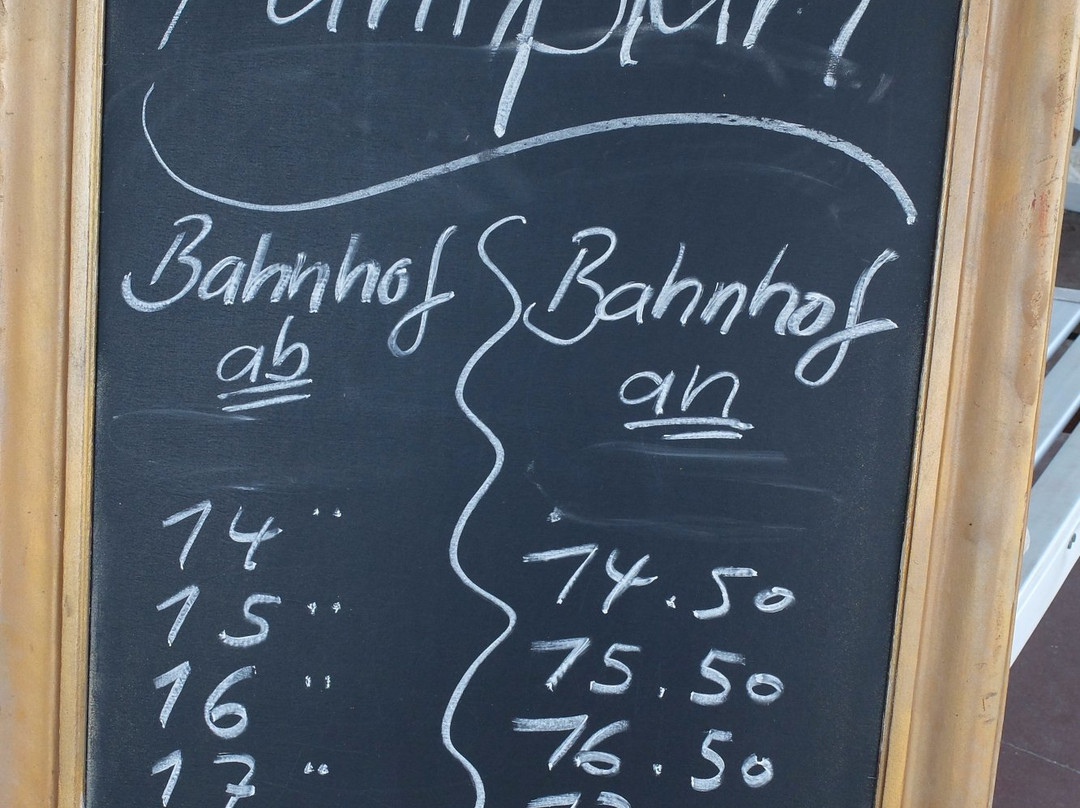 Fahrplan
Bahnhof
ab
14 ¨
15 ¨
16 "
17 ¨
Bahnhof
an
14.50
15.50
16.50